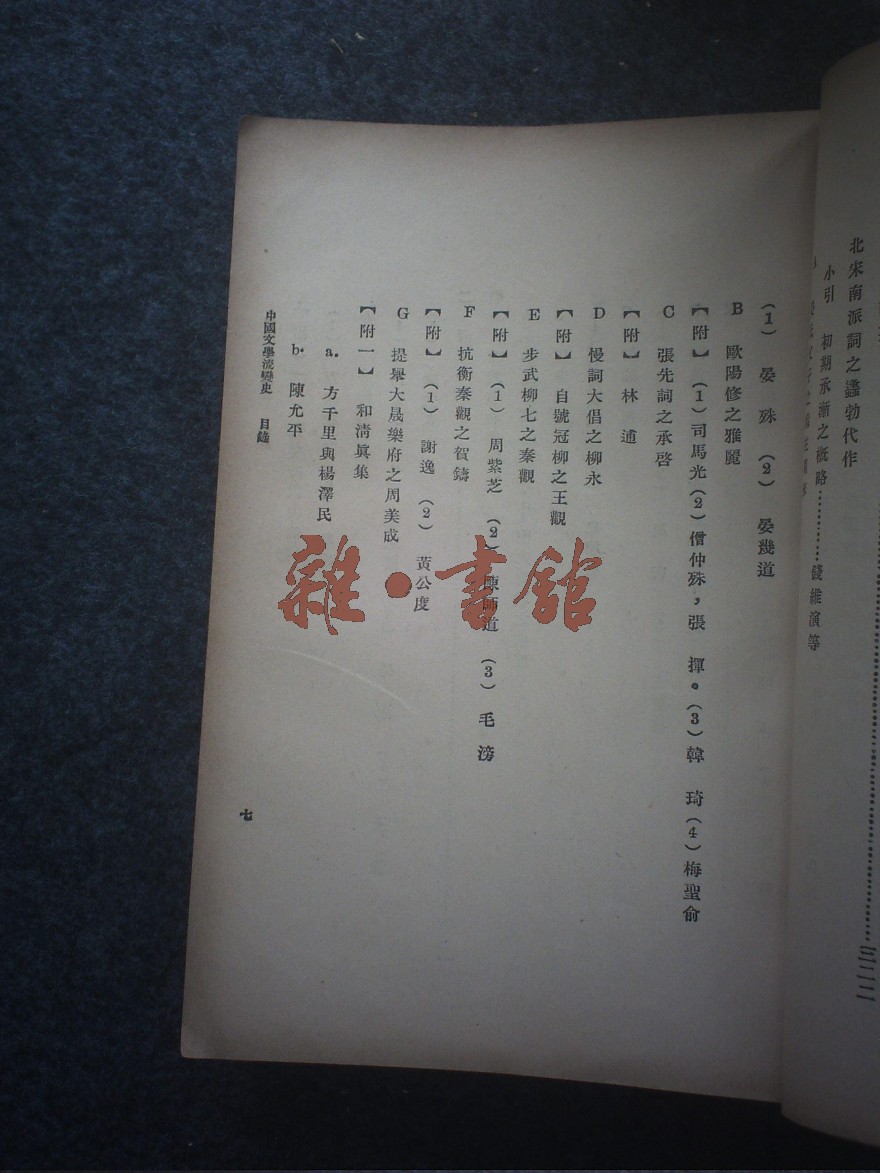 北宋南派詞之蠭勃代作
三二二
小引　初期承漸之槪略…………錢維演等
（1）　晏　殊　（2）　晏幾道
B　歐陽修之雅麗
【附】　（1）司馬光（2）僧仲殊，張　揮。（3）韓　琦（4）梅聖俞
C　張先詞之承啓
【附】　林　逋
D　慢詞大倡之柳永
【附】　自號冠柳之王觀
E　步武柳七之秦觀
【附】　（1）　周紫芝　（2）　陳師道　（3）　毛　滂
F　抗衡秦觀之賀鑄
【附】　（1）　謝逸　（2）　黃公度
G　提舉大晟樂府之周美成
【附一】　和淸眞集
a.　方千里與楊澤民
b.　陳允平
中國文學流變史　目錄
七
雜·書館